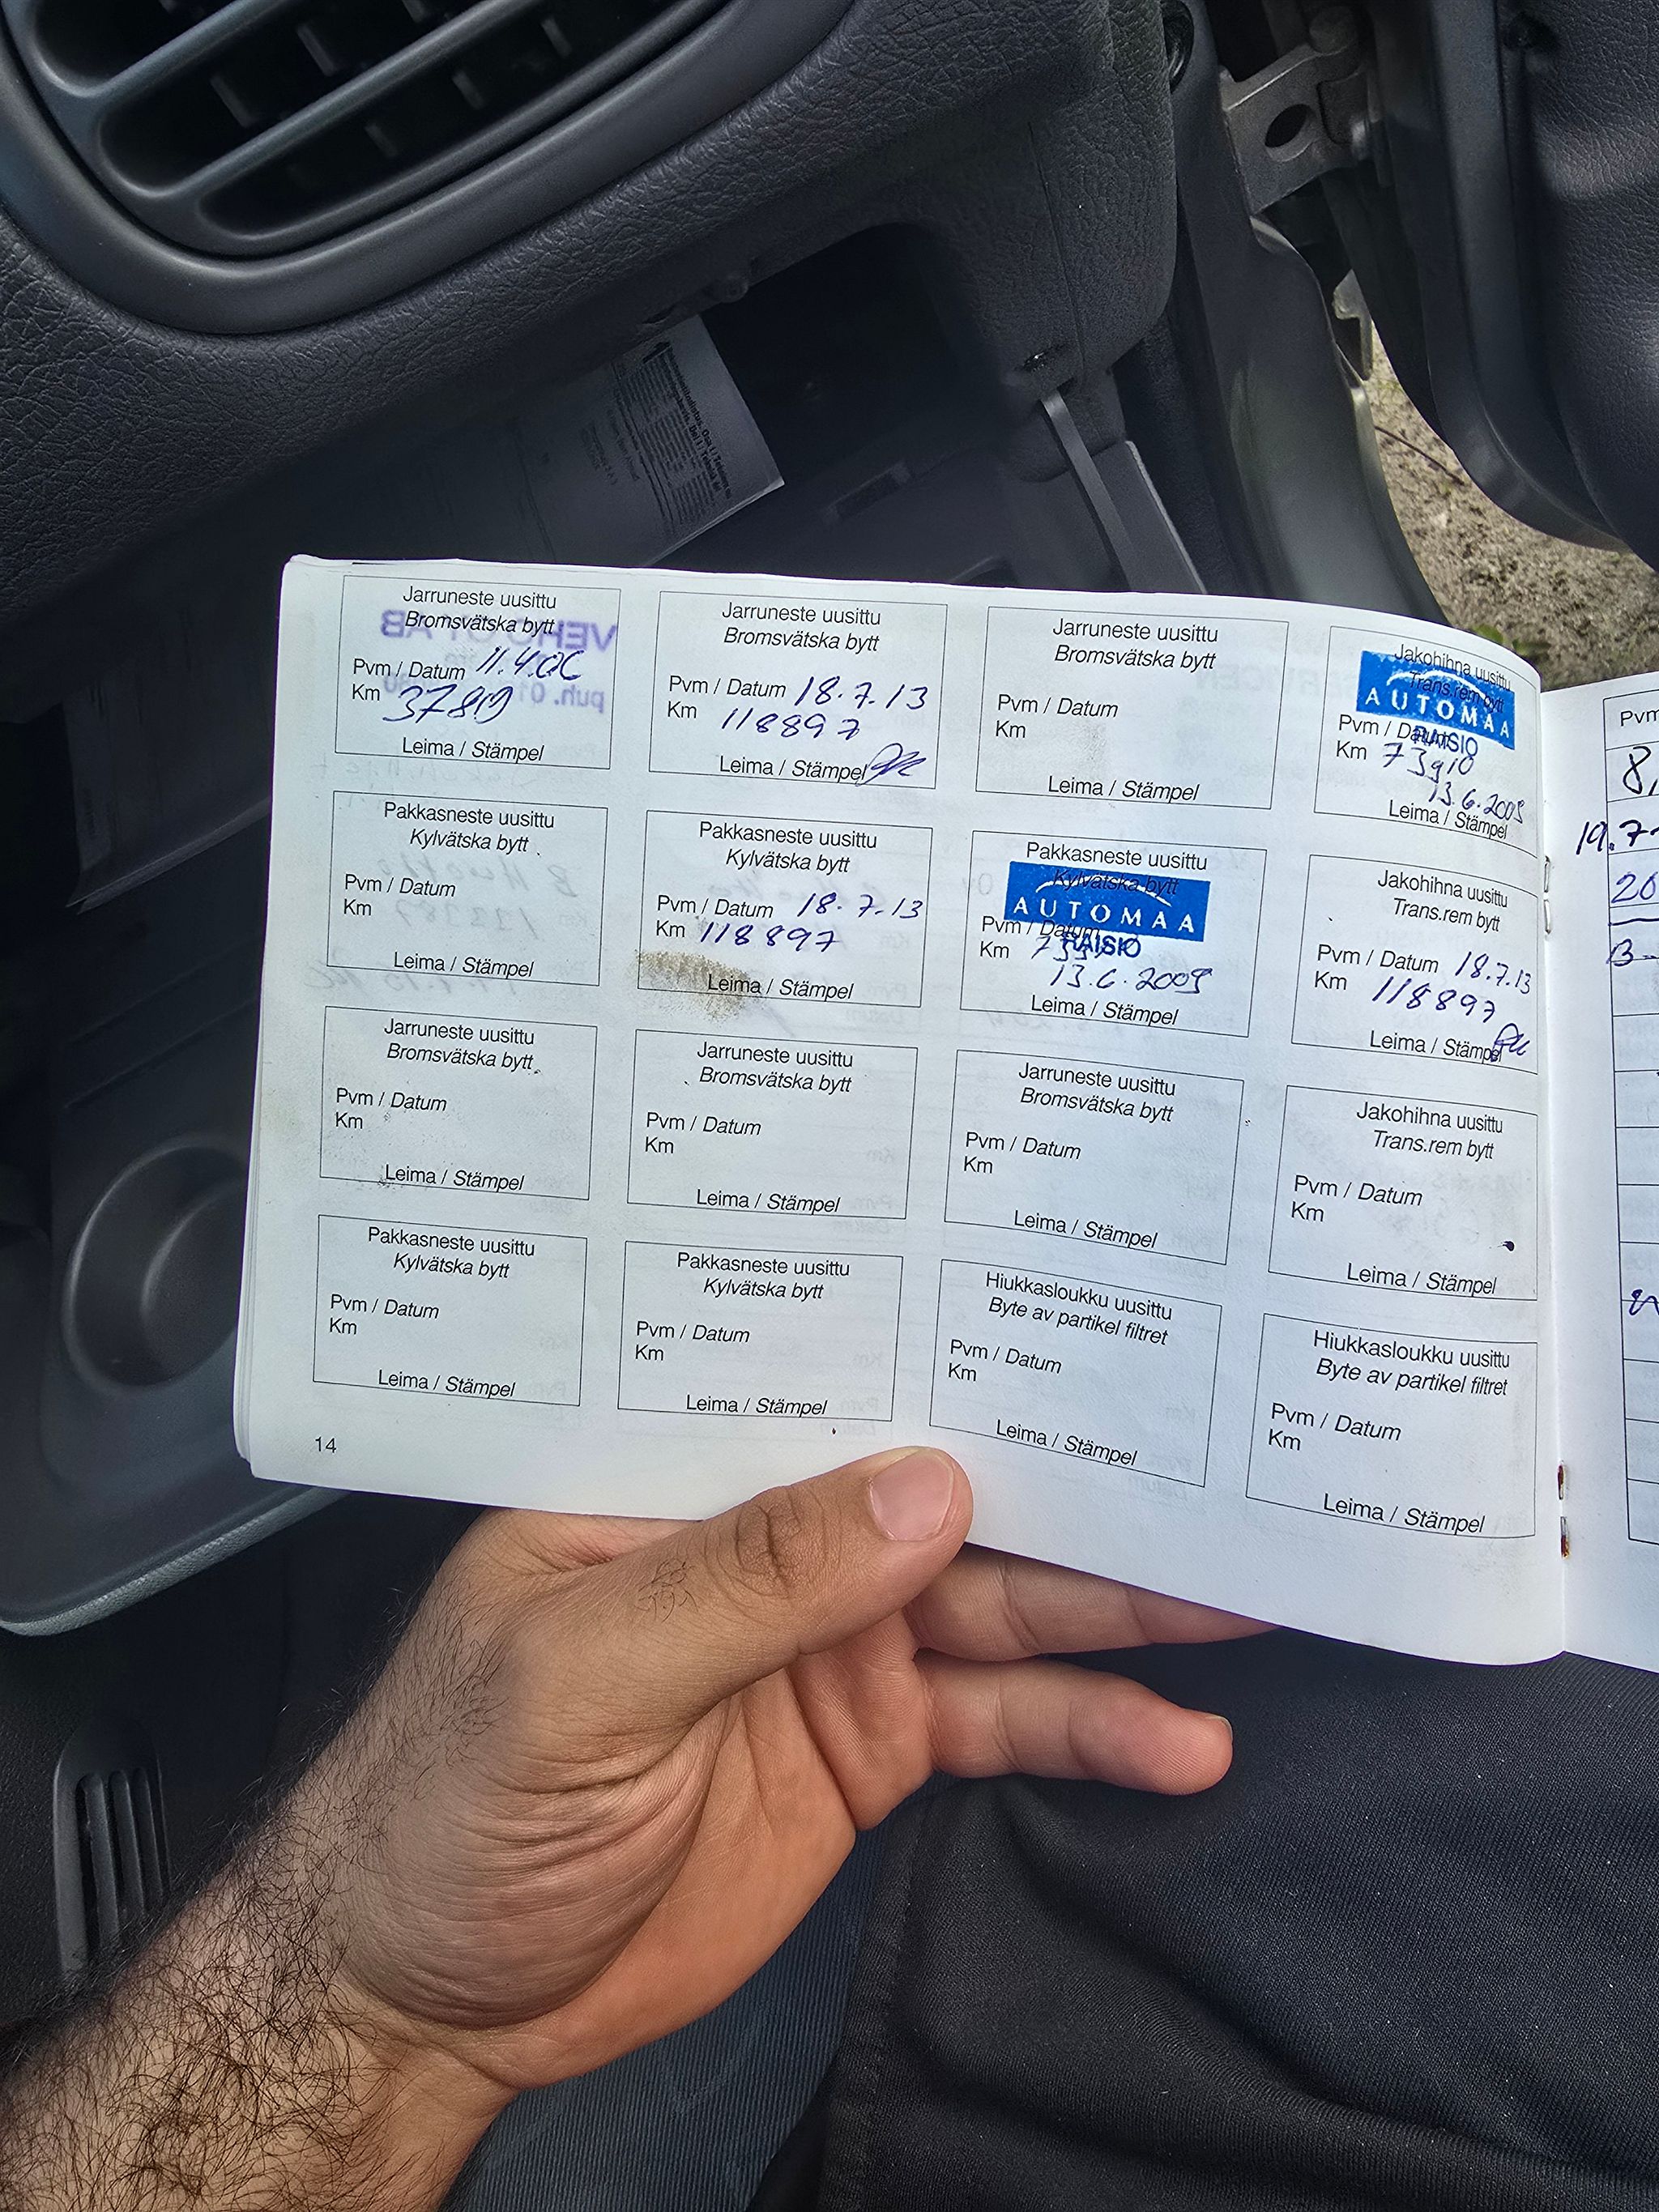 Jarruneste uusittu
Bromsvätska bytt
Pvm / Datum 11.4.06
Km
Leima / Stämpel
Jarruneste uusittu
Bromsvätska bytt
Pvm / Datum 18.7.13
Km 118897
Leima / Stämpel
Jarruneste uusittu
Bromsvätska bytt
Pvm / Datum
Km
Leima / Stämpel
Jakohihna uusittu
Trans.rem bytt
AUTOMAA
RAISIO
Pvm / Datum
Km 73910
13.6.2009
Leima / Stämpel
Pakkasneste uusittu
Kylvätska bytt
Pvm / Datum
Km
Leima / Stämpel
Pakkasneste uusittu
Kylvätska bytt
Pvm / Datum 18.7.13
Km 118897
Leima / Stämpel
Pakkasneste uusittu
Kylvätska bytt
AUTOMAA
RAISIO
Pvm / Datum
Km
13.6.2009
Leima / Stämpel
Jakohihna uusittu
Trans.rem bytt
Pvm / Datum 18.7.13
Km 118897
Leima / Stämpel
Jarruneste uusittu
Bromsvätska bytt
Pvm / Datum
Km
Leima / Stämpel
Jarruneste uusittu
Bromsvätska bytt
Pvm / Datum
Km
Leima / Stämpel
Jarruneste uusittu
Bromsvätska bytt
Pvm / Datum
Km
Leima / Stämpel
Jakohihna uusittu
Trans.rem bytt
Pvm / Datum
Km
Leima / Stämpel
Pakkasneste uusittu
Kylvätska bytt
Pvm / Datum
Km
Leima / Stämpel
Pakkasneste uusittu
Kylvätska bytt
Pvm / Datum
Km
Leima / Stämpel
Hiukkasloukku uusittu
Byte av partikel filtret
Pvm / Datum
Km
Leima / Stämpel
Hiukkasloukku uusittu
Byte av partikel filtret
Pvm / Datum
Km
Leima / Stämpel
14
Pvm
19.7
20